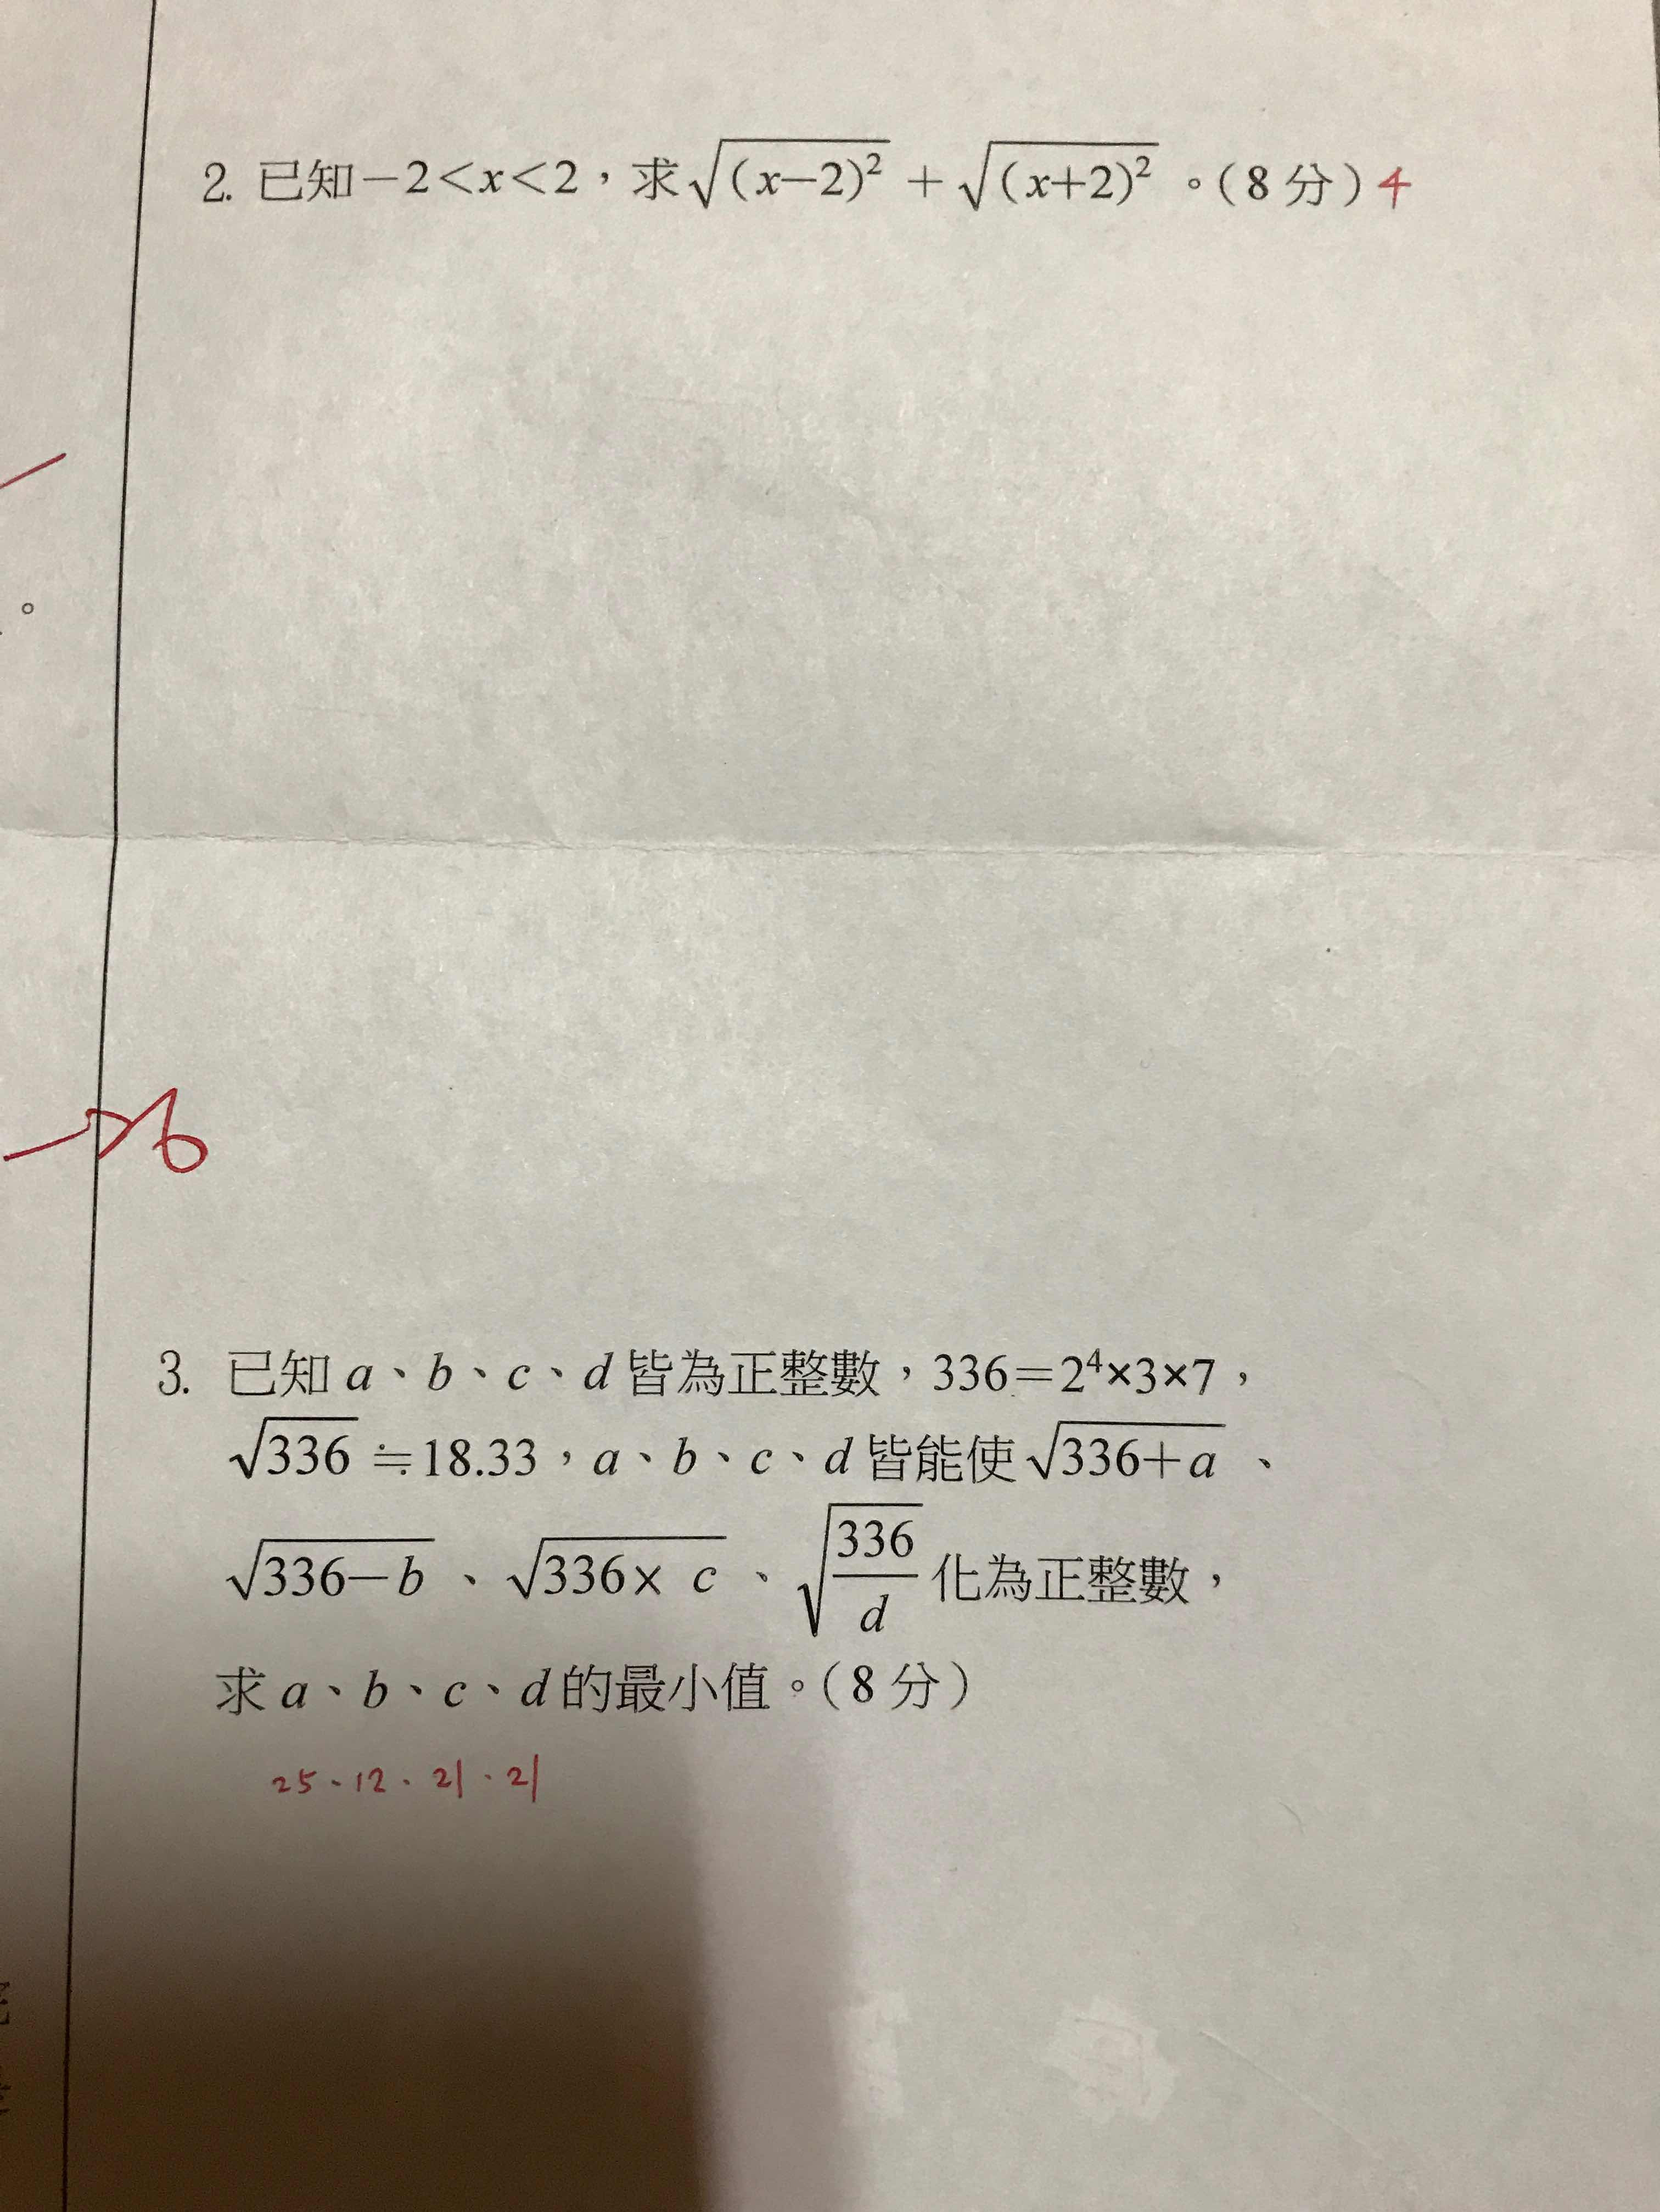 2. 已知－2＜x＜2，求√(x−2)² ＋√(x+2)² 。（8 分）4
。
76
3. 已知 a、b、c、d 皆為正整數，336＝2⁴×3×7，
√336 ≒18.33，a、b、c、d 皆能使√336＋a 、
√336－b 、√336× c 、√336/d 化為正整數，
求 a、b、c、d 的最小值。（8 分）
25、12、21、21